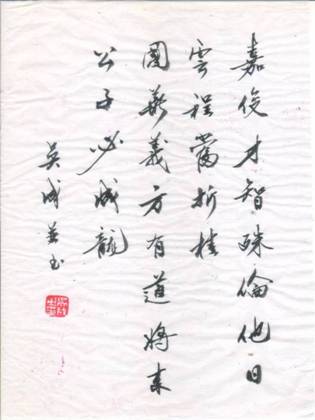 嘉俊才智殊倫他日
雲程當折桂
國義方有道將來
公子必成龍
吳成